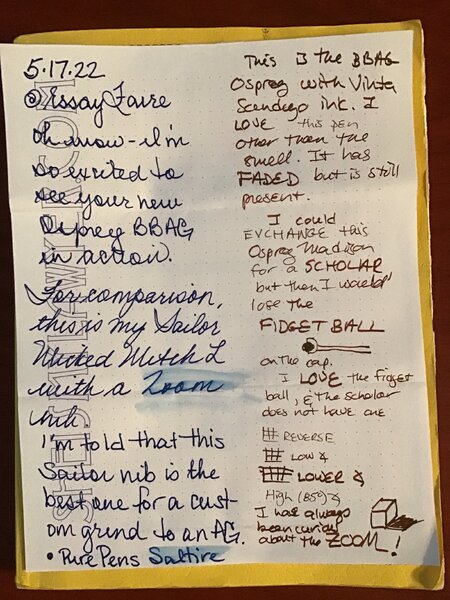 5.17.22
@EssayFaire
Oh wow - I'm
so excited to
see your new
Osprey BBAG
in action.
For comparison,
this is my Sailor
Wicked Witch L
with a Zoom
nib.
I'm told that this
Sailor nib is the
best one for a cust-
om grind to an AG.
• Pure Pens Saltire
This IS the BBAG
Osprey with Vinta
ink. I
LOVE this pen
other than the
smell. It has
FADED but is still
present.
I could
EXCHANGE this
Osprey Madison
for a SCHOLAR
but then I would
lose the
FIDGET BALL
on the cap.
I LOVE the fidget
ball, & the scholar
does not have one
REVERSE
LOW ∡
LOWER ∡
High (85°) ∡
I has always
been curious
about the ZOOM!